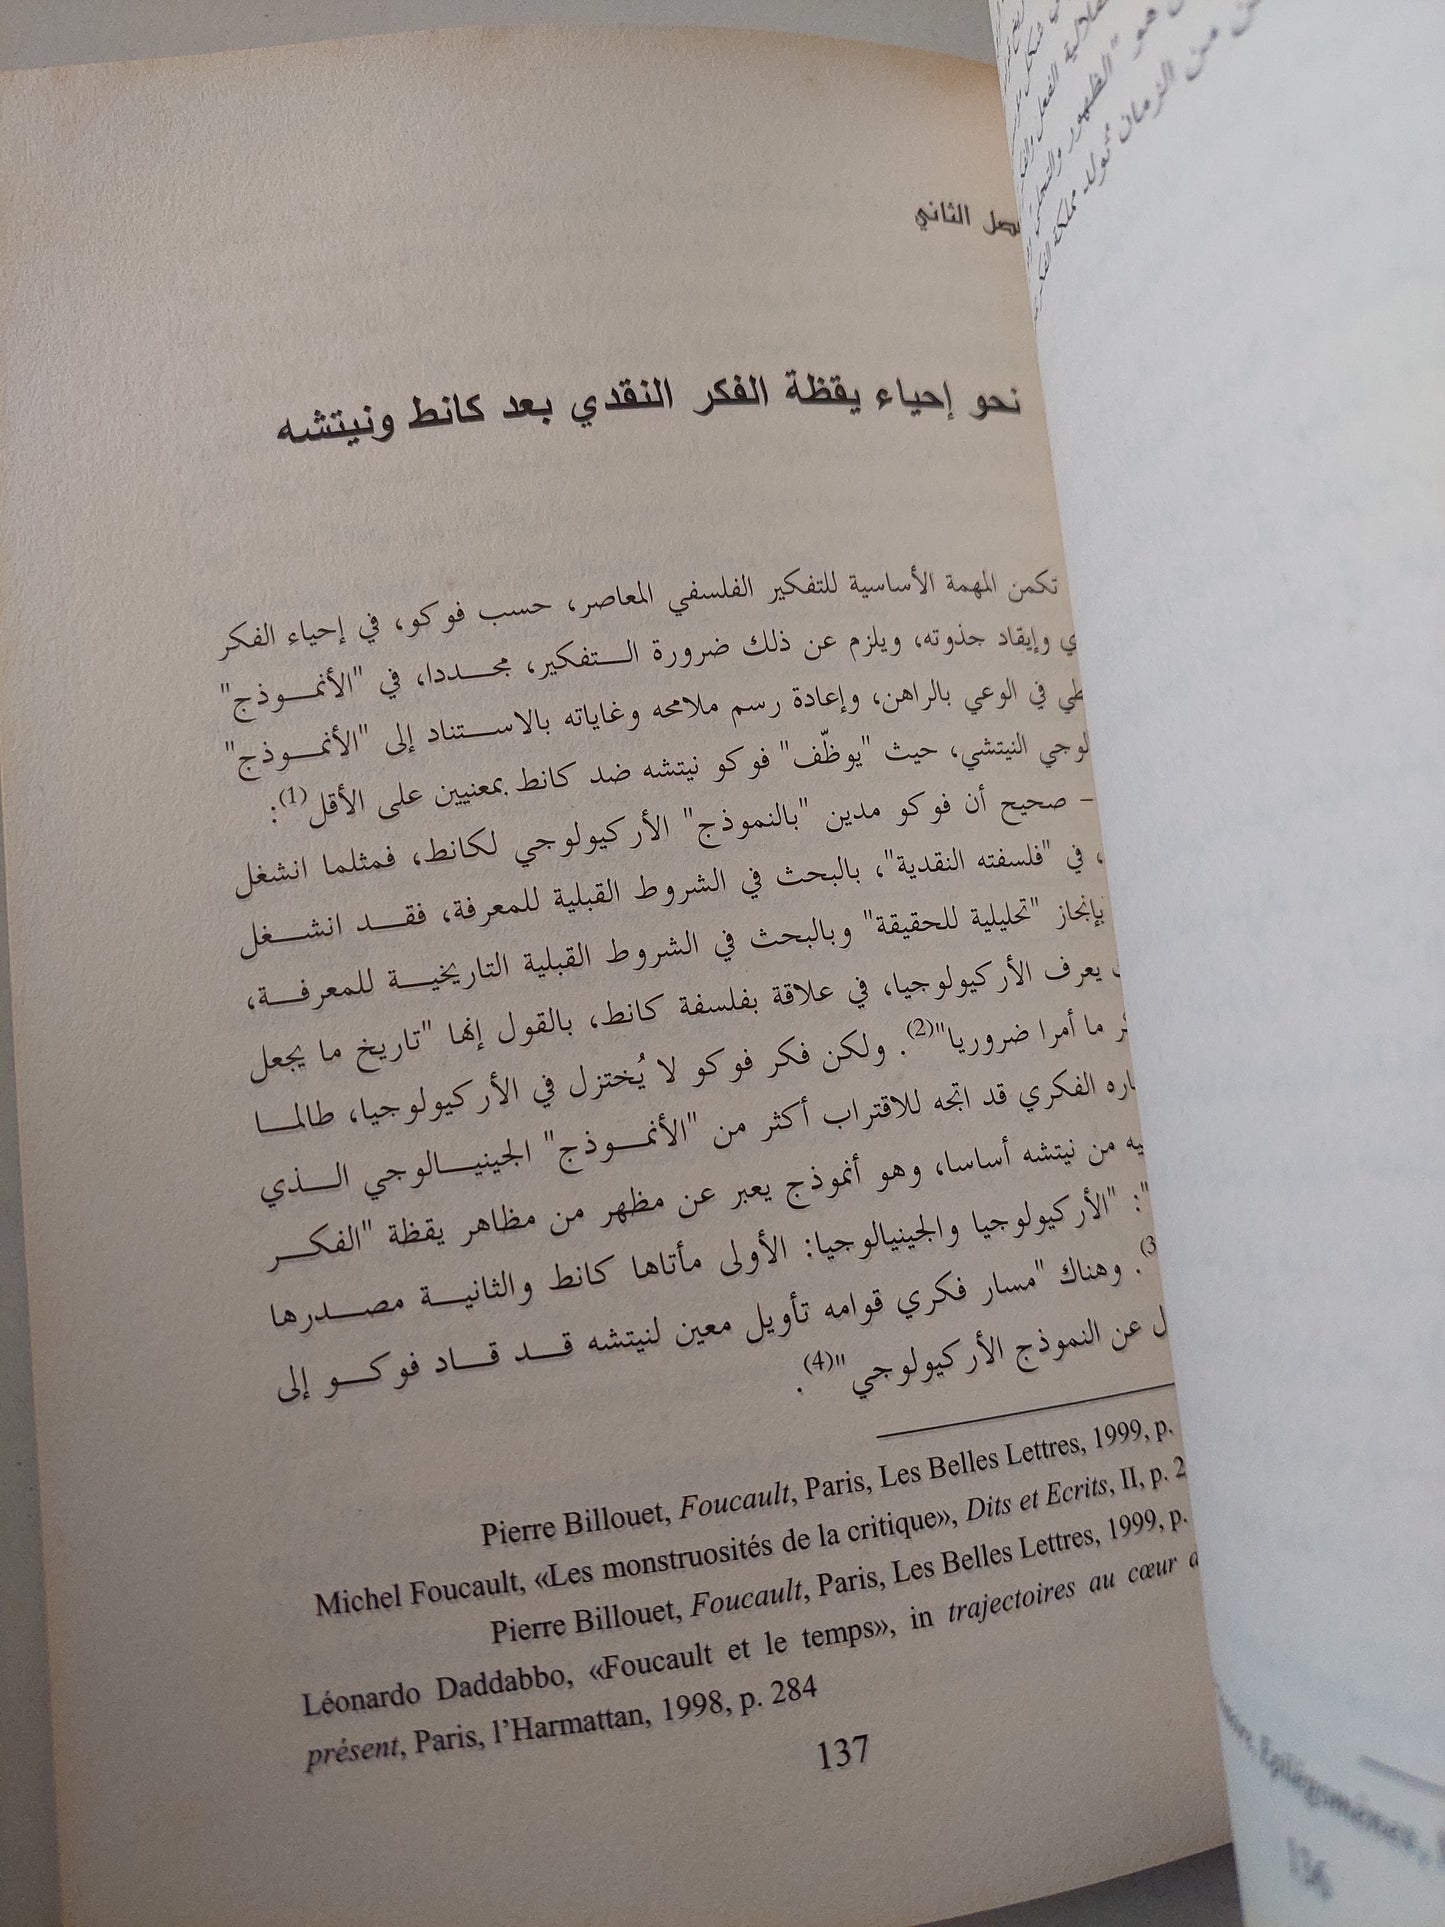 الثاني
نحو إحياء يقظة الفكر النقدي بعد كانط ونيتشه
تكمن المهمة الأساسية للتفكير الفلسفي المعاصر، حسب فوكو، في إحياء الفكر
وإيقاد جذوته، ويلزم عن ذلك ضرورة الـتفكير، مجددا، في "الأنموذج"
في الوعي بالراهن، وإعادة رسم ملامحه وغاياته بالاستناد إلى "الأنموذج"
النيتشي، حيث "يوظّف" فوكو نيتشه ضد كانط بمعنيين على الأقل(1):
– صحيح أن فوكو مدين "بالنموذج" الأركيولوجي لكانط، فمثلما انشغل
، في "فلسفته النقدية"، بالبحث في الشروط القبلية للمعرفة، فقد انشغل
بإنجاز "تحليلية للحقيقة" وبالبحث في الشروط القبلية التاريخية للمعرفة،
يعرف الأركيولوجيا، في علاقة بفلسفة كانط، بالقول إنها "تاريخ ما يجعل
ما أمرا ضروريا"(2). ولكن فكر فوكو لا يُختزل في الأركيولوجيا، طالما
الفكري قد اتجه للاقتراب أكثر من "الأنموذج" الجينيالوجي الذي
من نيتشه أساسا، وهو أنموذج يعبر عن مظهر من مظاهر يقظة "الفكر
": "الأركيولوجيا والجينيالوجيا: الأولى مأتاها كانط والثانية مصدرها
3). وهناك "مسار فكري قوامه تأويل معين لنيتشه قد قاد فوكو إلى
عن النموذج الأركيولوجي"(4).
Pierre Billouet, Foucault, Paris, Les Belles Lettres, 1999, p.
Michel Foucault, «Les monstruosités de la critique», Dits et Ecrits, II, p. 2
Pierre Billouet, Foucault, Paris, Les Belles Lettres, 1999, p.
Léonardo Daddabbo, «Foucault et le temps», in trajectoires au cœur
présent, Paris, l'Harmattan, 1998, p. 284
137